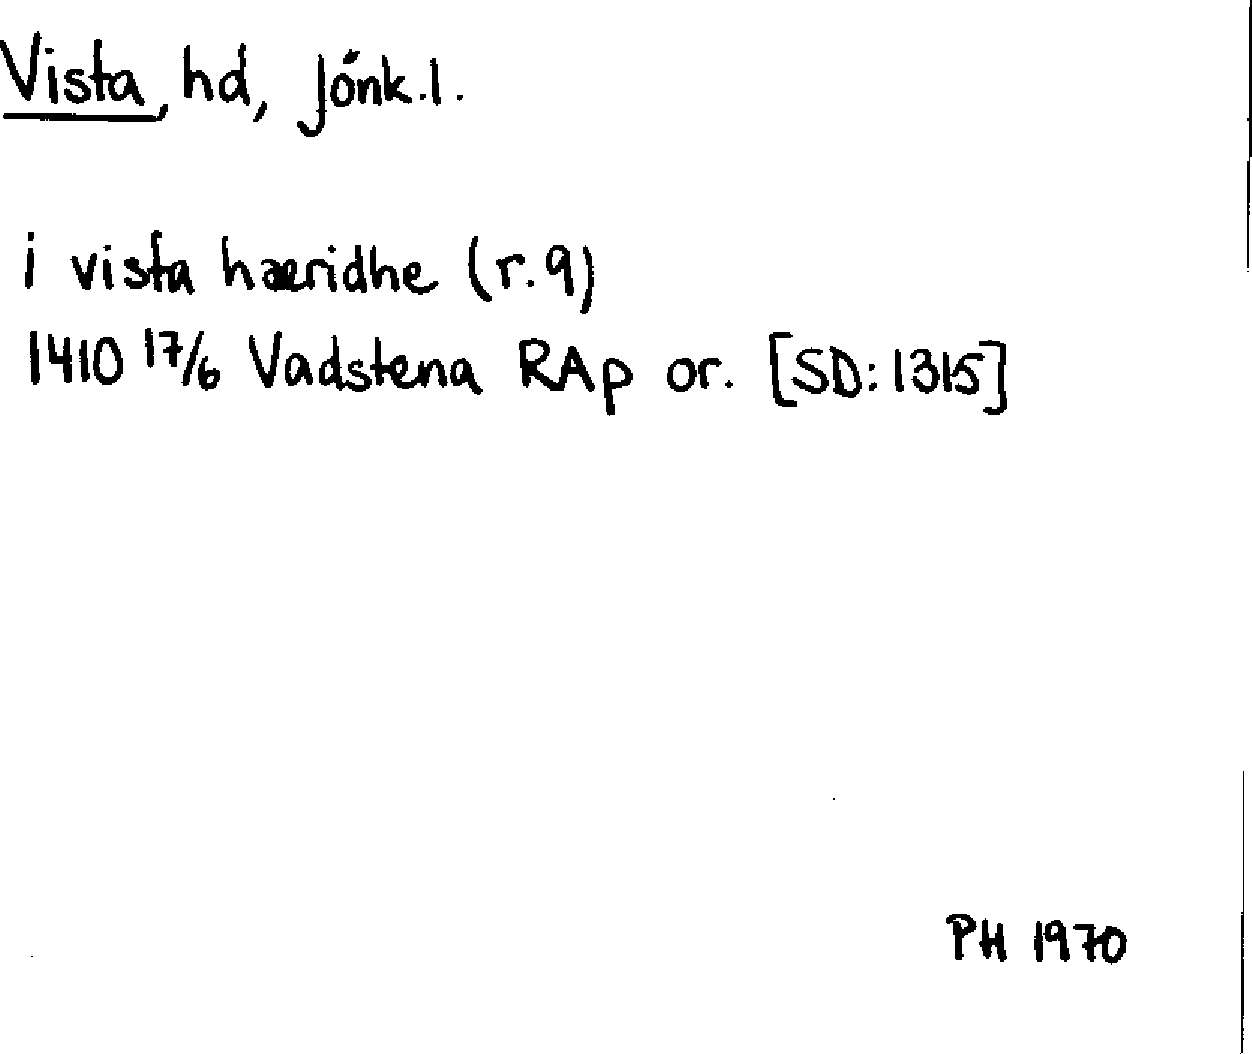 Vista, hd, Jönk.l.
i vista hæridhe (r.9)
1410 17/6 Vadstena RAp or. [SD:1315]
PH 1970